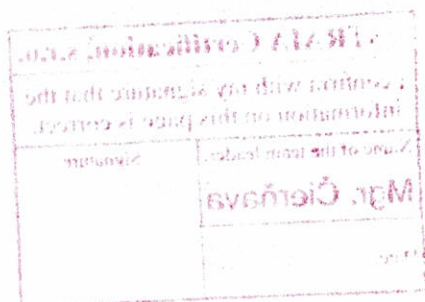 Certification, s.r.o.
I confirm with my signature that the
information on this page is correct.
Name of the team leader:
Signature
Mgr. Čierňava